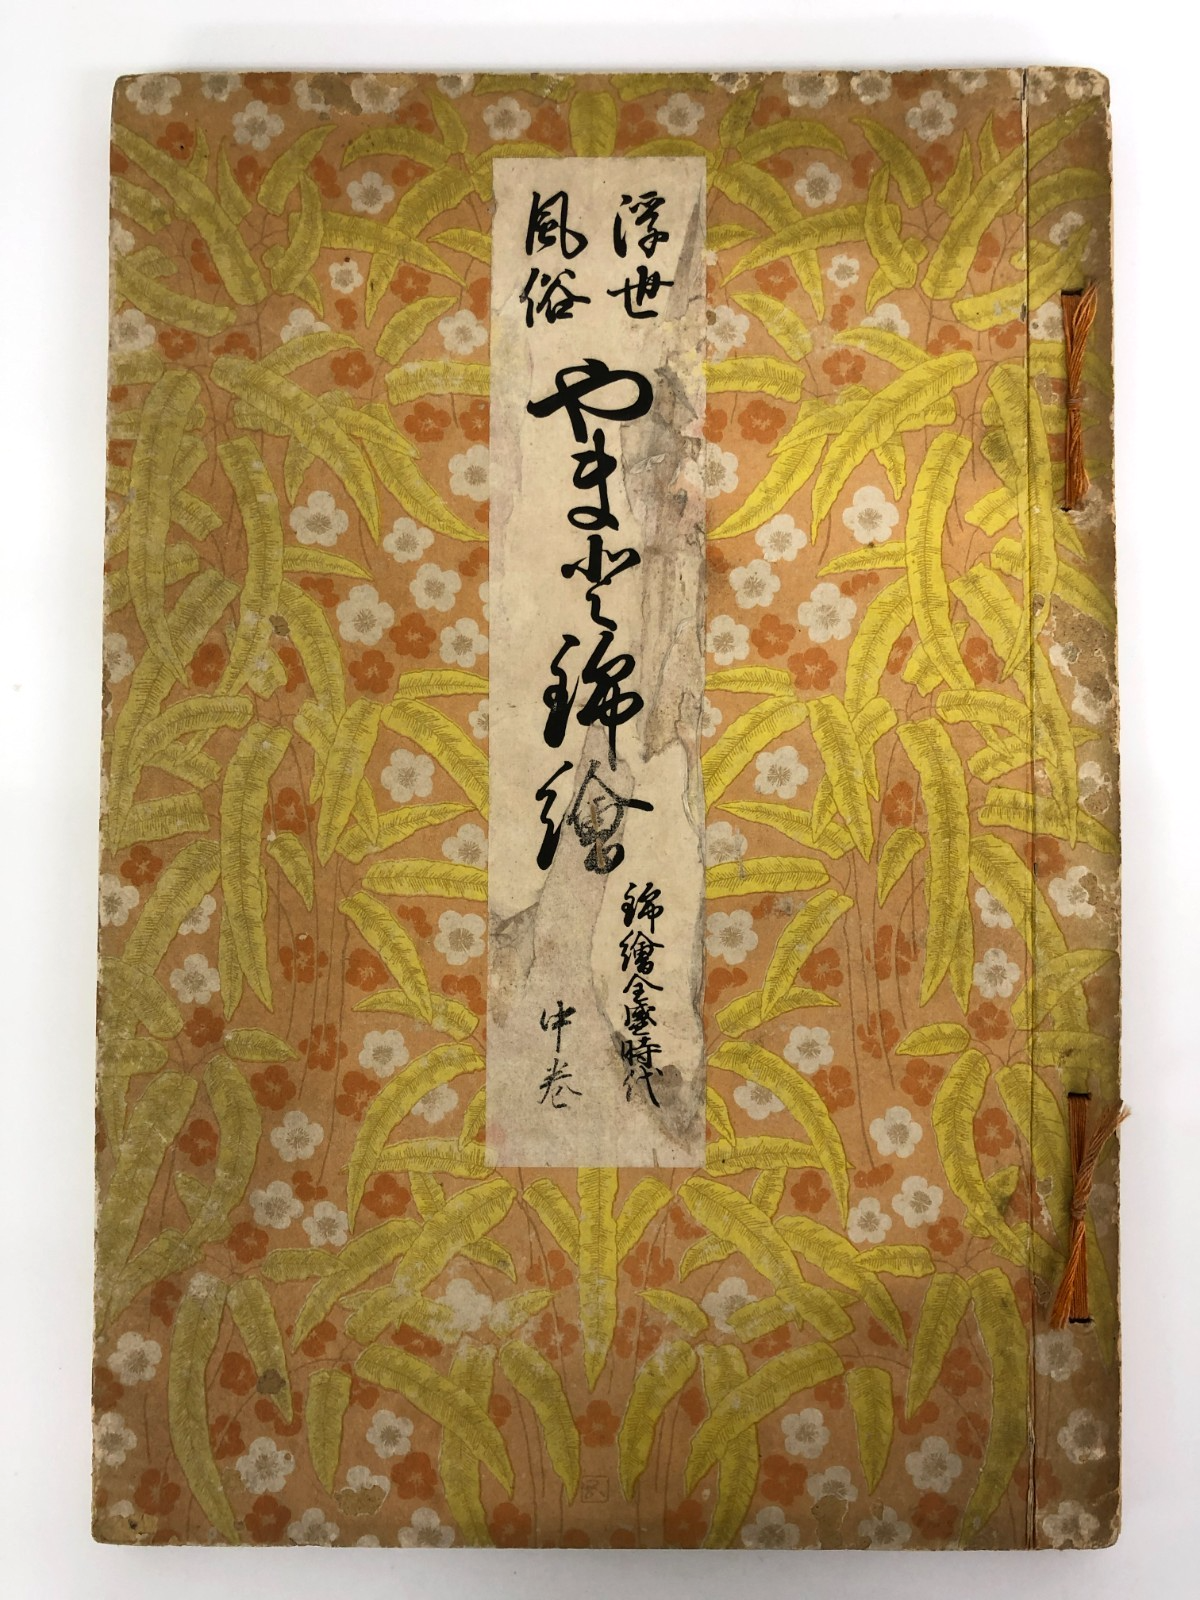 浮世
風俗
やまと錦繪
錦繪全盛時代
中卷